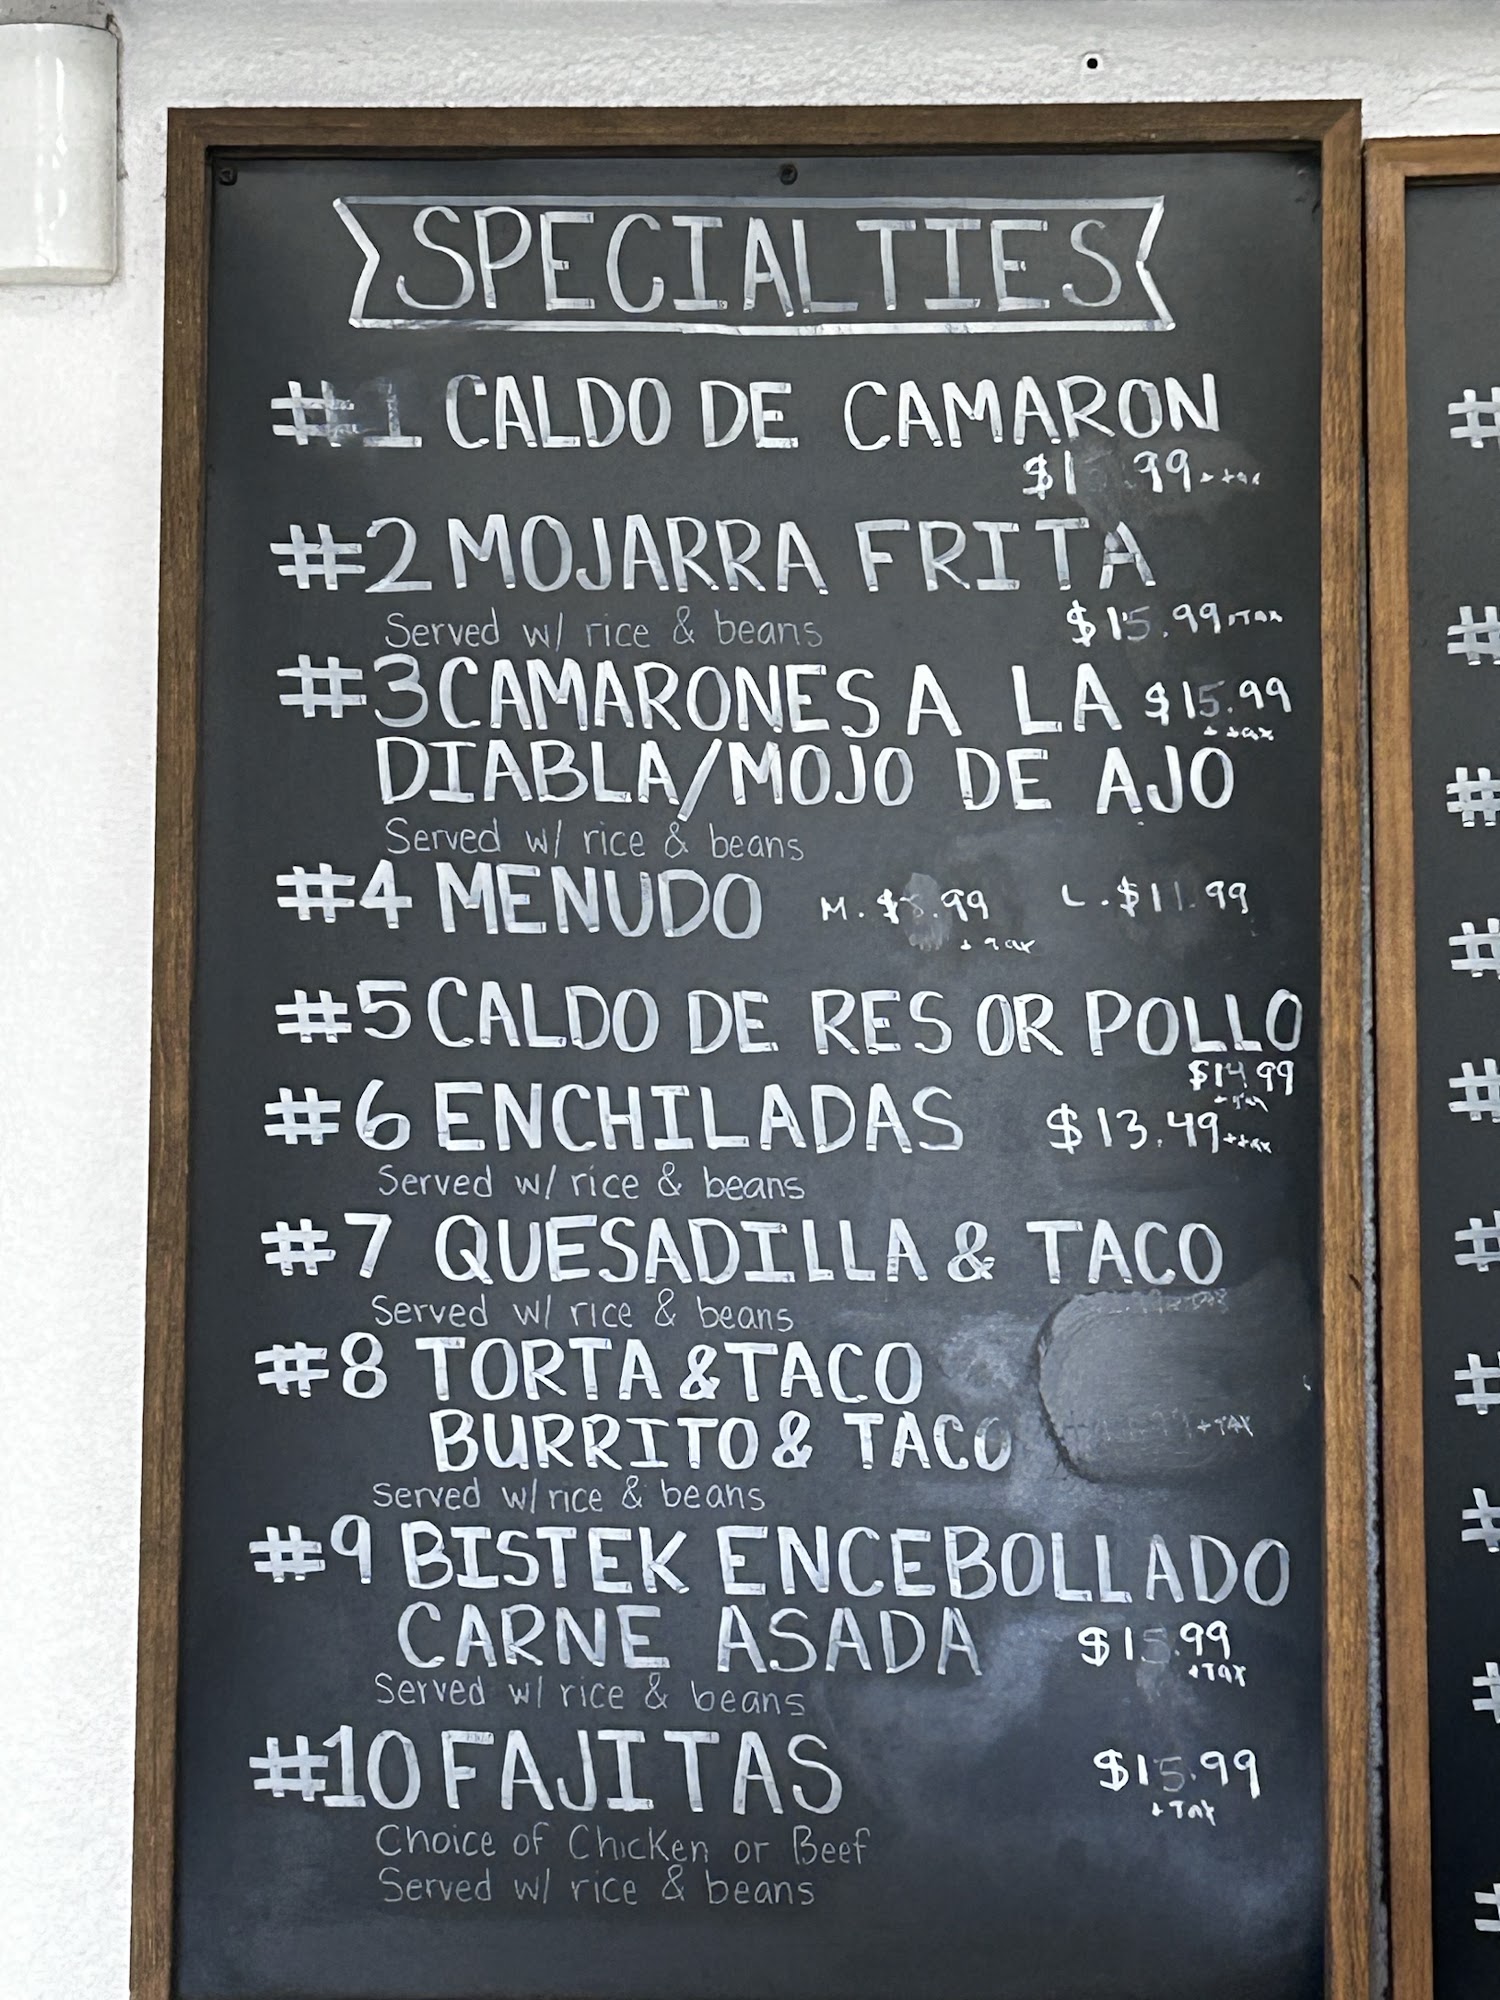 SPECIALTIES
#1 CALDO DE CAMARON
+ tax
#2 MOJARRA FRITA
Served w/ rice & beans $15.99 + Tax
#3 CAMARONES A LA $15.99
+ tax
DIABLA/MOJO DE AJO
Served w/ rice & beans
#4 MENUDO M. L. $11.99
+ tax
#5 CALDO DE RES OR POLLO
$14.99
+ Tax
#6 ENCHILADAS $13.49 + tax
Served w/ rice & beans
#7 QUESADILLA & TACO
Served w/ rice & beans
#8 TORTA & TACO
BURRITO & TACO + TAX
served w/ rice & beans
#9 BISTEK ENCEBOLLADO
CARNE ASADA $15.99
+ TAX
Served w/ rice & beans
#10 FAJITAS $15.99
+ TAX
Choice of Chicken or Beef
Served w/ rice & beans